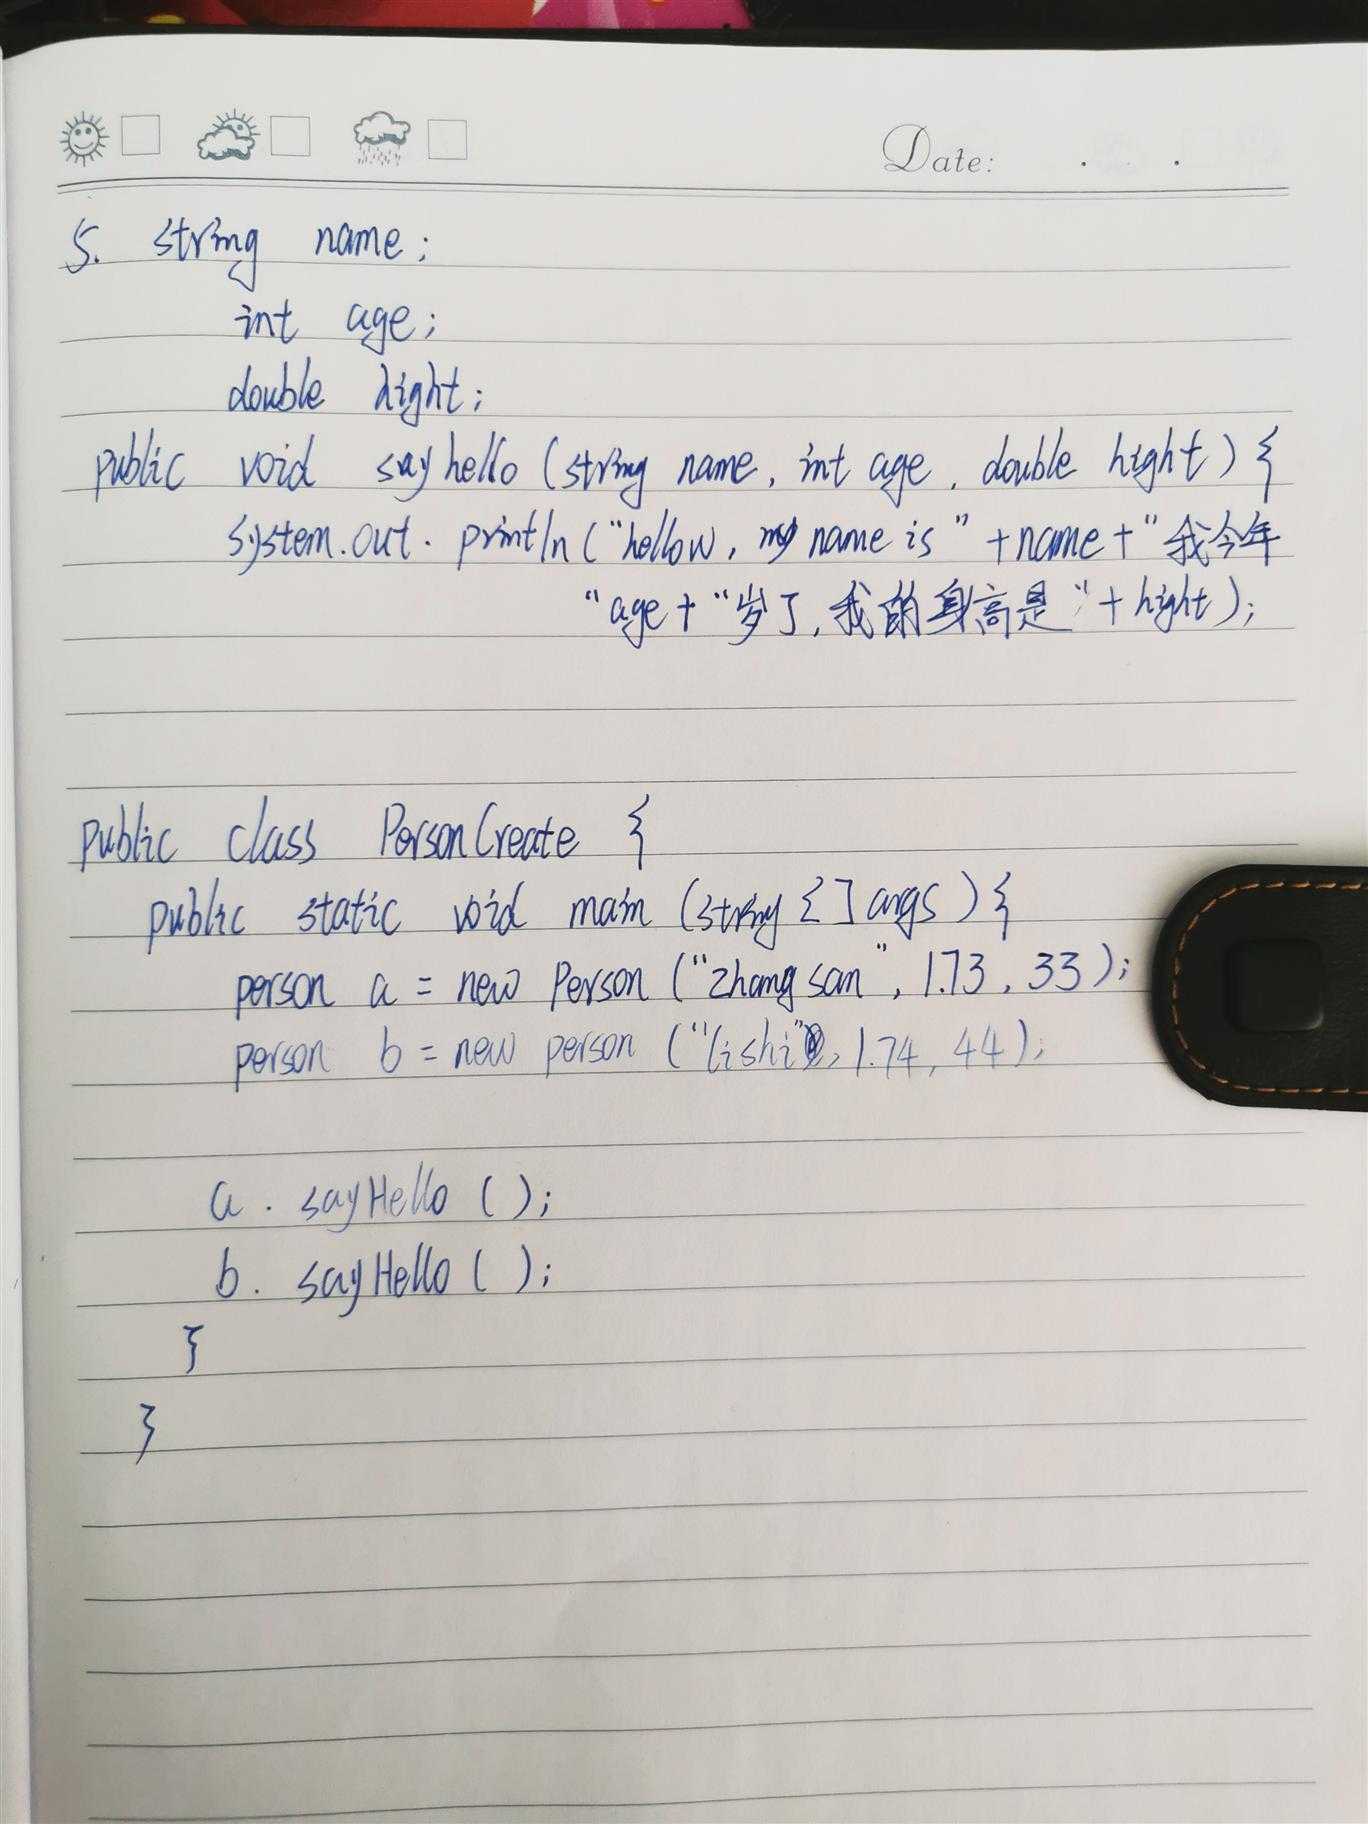 Date:
5. string name;
int age;
double hight;
public void sayhello (string name, int age, double hight) {
system.out.println("hellow, my name is"+name+"我今年
"age+"岁了,我的身高是"+hight);
public class PersonCreate {
public static void main (string [] args) {
person a = new Person ("zhangsan", 1.73, 33);
person b = new person ("lishi", 1.74, 44);
a. sayHello ();
b. sayHello ();
}
}